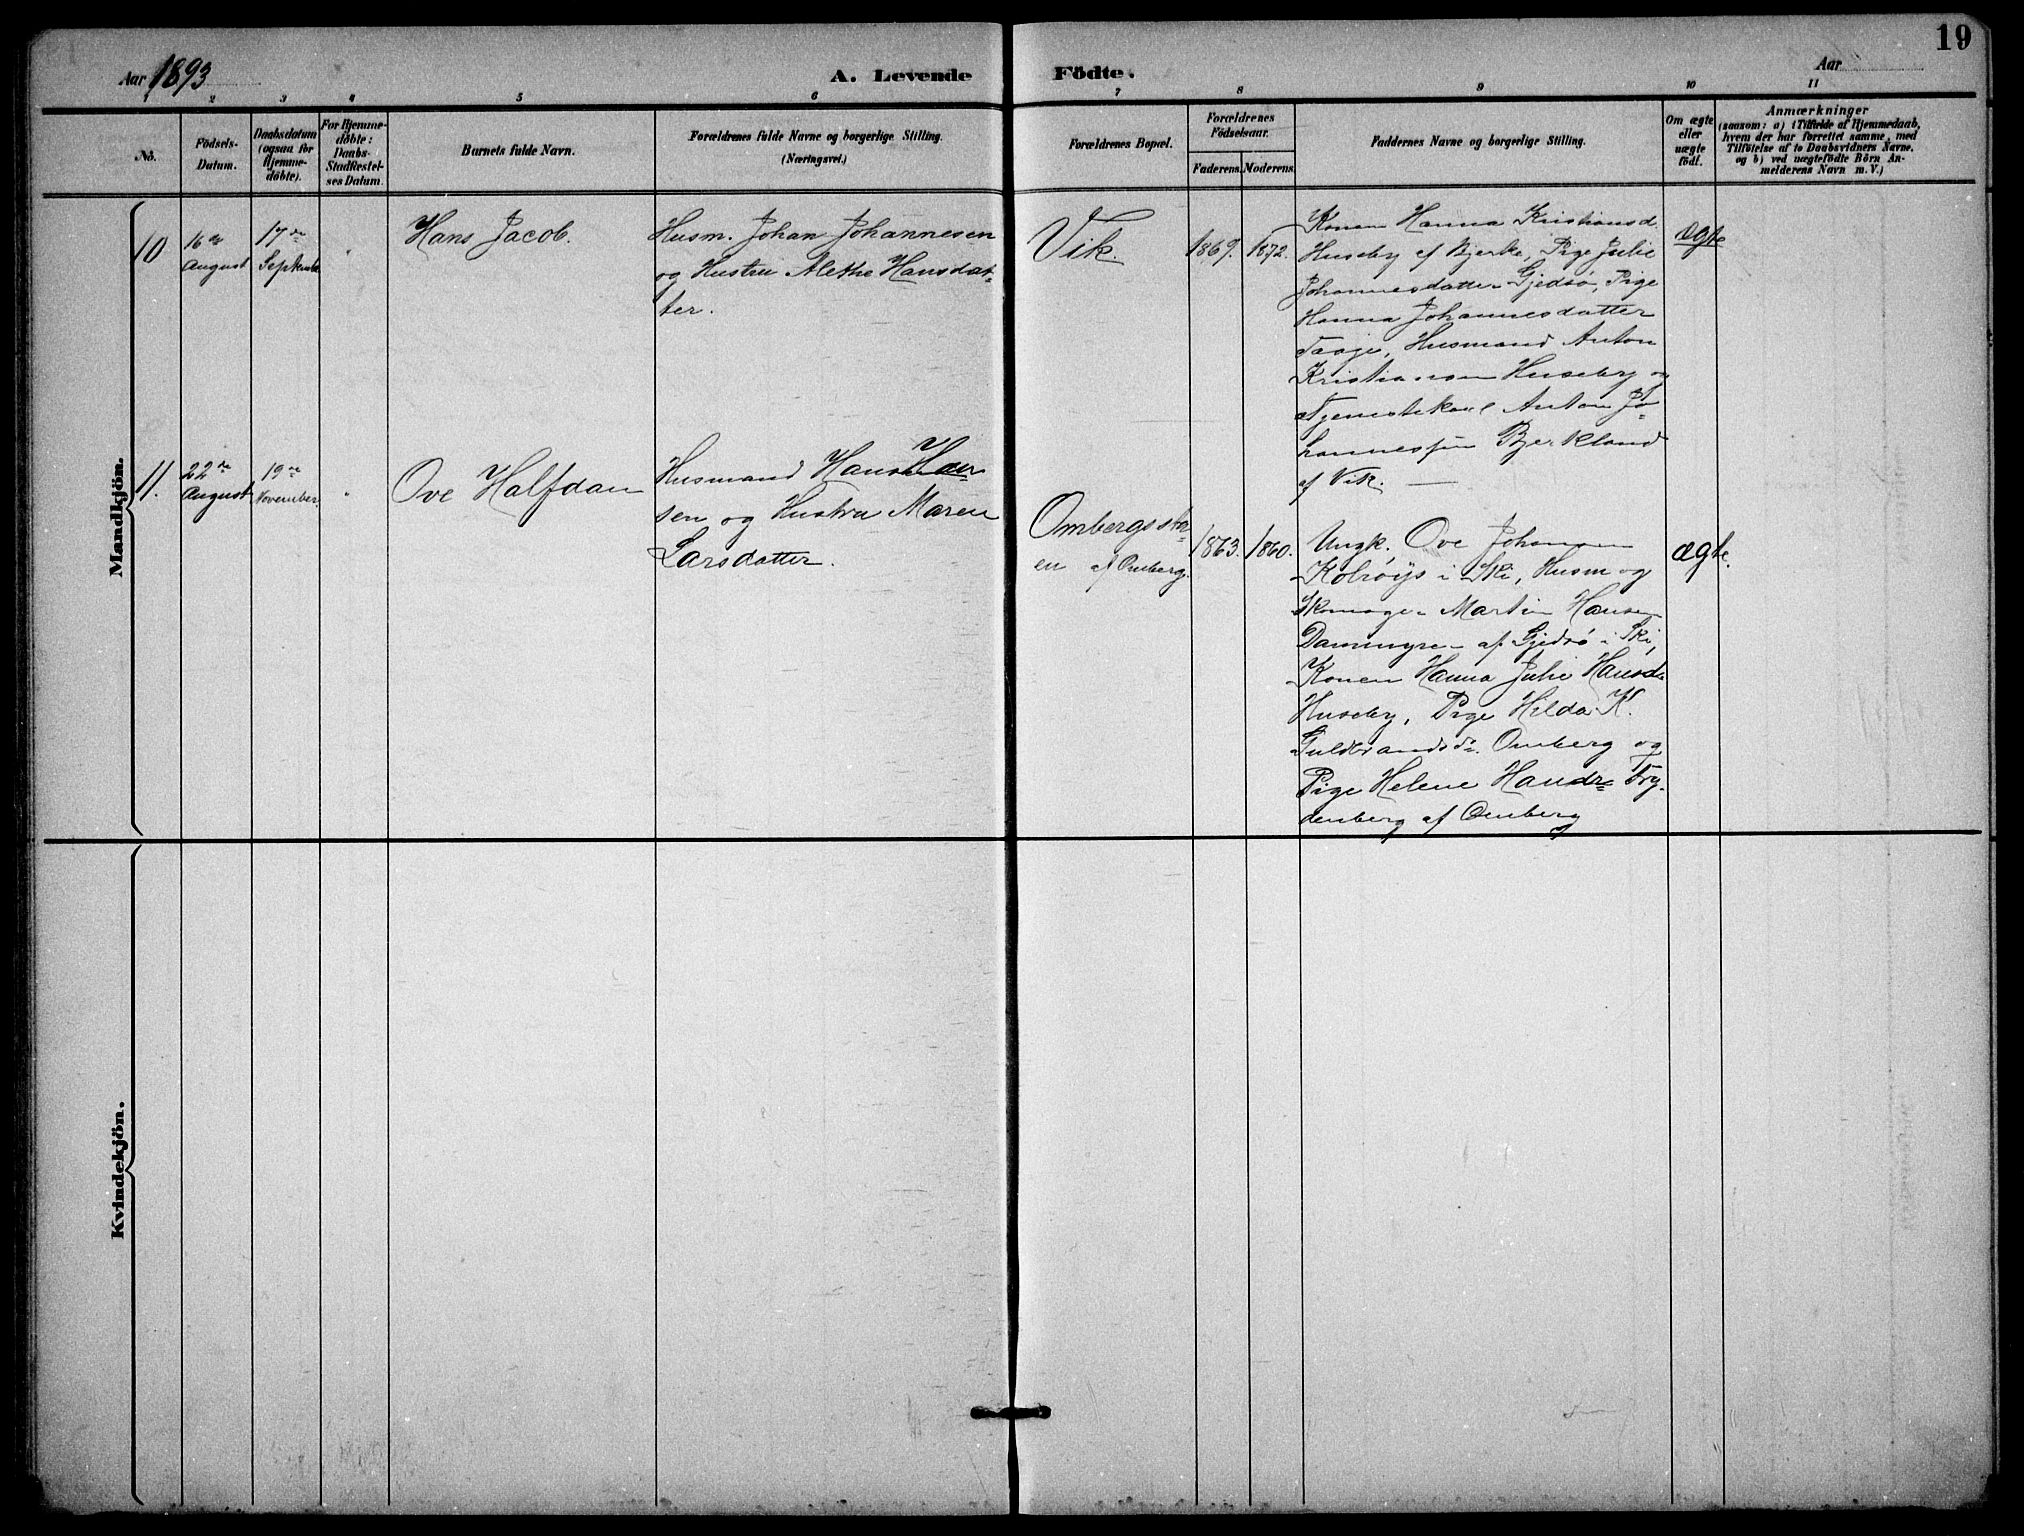 19
Aar 1893
A. Levende Födte.
Aar
1 2 3 4 5 6 7 8 9 10 11
No.
Födsels-
Datum.
Daabsdatum
(ogsaa for
Hjemme-
döbte).
For Hjemme-
döbte:
Daabs-
Stadfæstel-
ses Datum.
Barnets fulde Navn.
Forældrenes fulde Navne og borgerlige Stilling.
(Næringsvei.)
Forældrenes Bopæl.
Forældrenes
Födselsaar.
Faderens. Moderens.
Faddernes Navne og borgerlige Stilling.
Om ægte
eller
uægte
födt.
Anmærkninger
(saasom: a) i Tilfælde af Hjemmedaab,
hvem der har forrettet samme, med
Tilföielse af to Daabsvidners Navne,
og b) ved uægtefödte Börn An-
melderens Navn m. V.)
Mandkjön.
10
16de
August
17de
September
Hans Jacob.
Husm. Johan Johannesen
og Hustru Alethe Hansdat-
ter.
Vik.
1869.
1872.
Konen Hanna Kristiansd.
Huseby af Bjerke, Pige Julie
Johannesdatter Gjedsø, Pige
Hanna Johannesdatter
Taaje, Husmand Anton
Kristiansen Huseby og
Tjenestekarl Anton Jo-
hannessen Bjerkland
af Vik.
ægte
11.
22de
August
19de
November.
Ove Halfdan
Husmand Hans Han-
sen og Hustru Maren
Larsdatter.
Ombergsstu-
en af Omberg.
1863.
1860.
Ungk. Ove Johansen
i Ski, Husm og
Skomager Martin Hansen
Dammyren af Gjedsø i Ski,
Konen Hanna Julie Hansdr
Huseby, Pige Hilda K.
Guldbrandsdr. Omberg og
Pige Helene Hansdr Fry-
denberg af Omberg
ægte.
Kvindekjön.